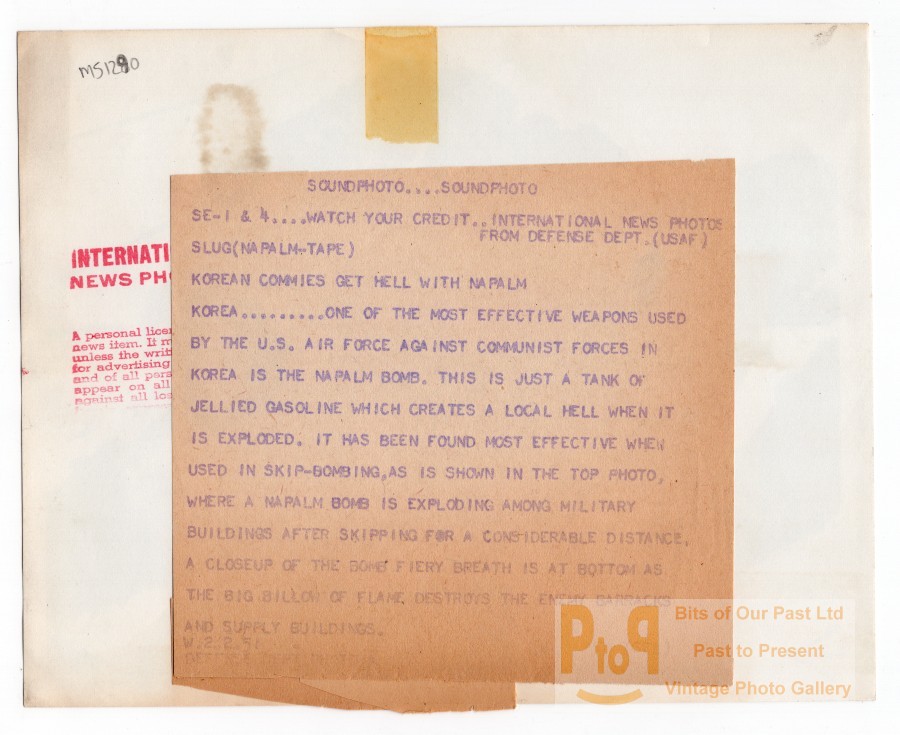 MS1290
SOUNDPHOTO....SOUNDPHOTO
SE-1 & 4....WATCH YOUR CREDIT..INTERNATIONAL NEWS PHOTOS
FROM DEFENSE DEPT.(USAF)
SLUG(NAPALM-TAPE)
KOREAN COMMIES GET HELL WITH NAPALM
KOREA.........ONE OF THE MOST EFFECTIVE WEAPONS USED
BY THE U.S. AIR FORCE AGAINST COMMUNIST FORCES IN
KOREA IS THE NAPALM BOMB. THIS IS JUST A TANK OF
JELLIED GASOLINE WHICH CREATES A LOCAL HELL WHEN IT
IS EXPLODED. IT HAS BEEN FOUND MOST EFFECTIVE WHEN
USED IN SKIP-BOMBING,AS IS SHOWN IN THE TOP PHOTO,
WHERE A NAPALM BOMB IS EXPLODING AMONG MILITARY
BUILDINGS AFTER SKIPPING FOR A CONSIDERABLE DISTANCE.
A CLOSEUP OF THE BOMB FIERY BREATH IS AT BOTTOM AS
THE BIG BILLOW OF FLAME DESTROYS THE ENEMY BARRACKS
AND SUPPLY BUILDINGS.
W.2.2.51
INTERNATI
NEWS PH
A personal lice
news item. It m
unless the writ
for advertising
and of all pers
appear on all
against all los
PtoP
Bits of Our Past Ltd
Past to Present
Vintage Photo Gallery